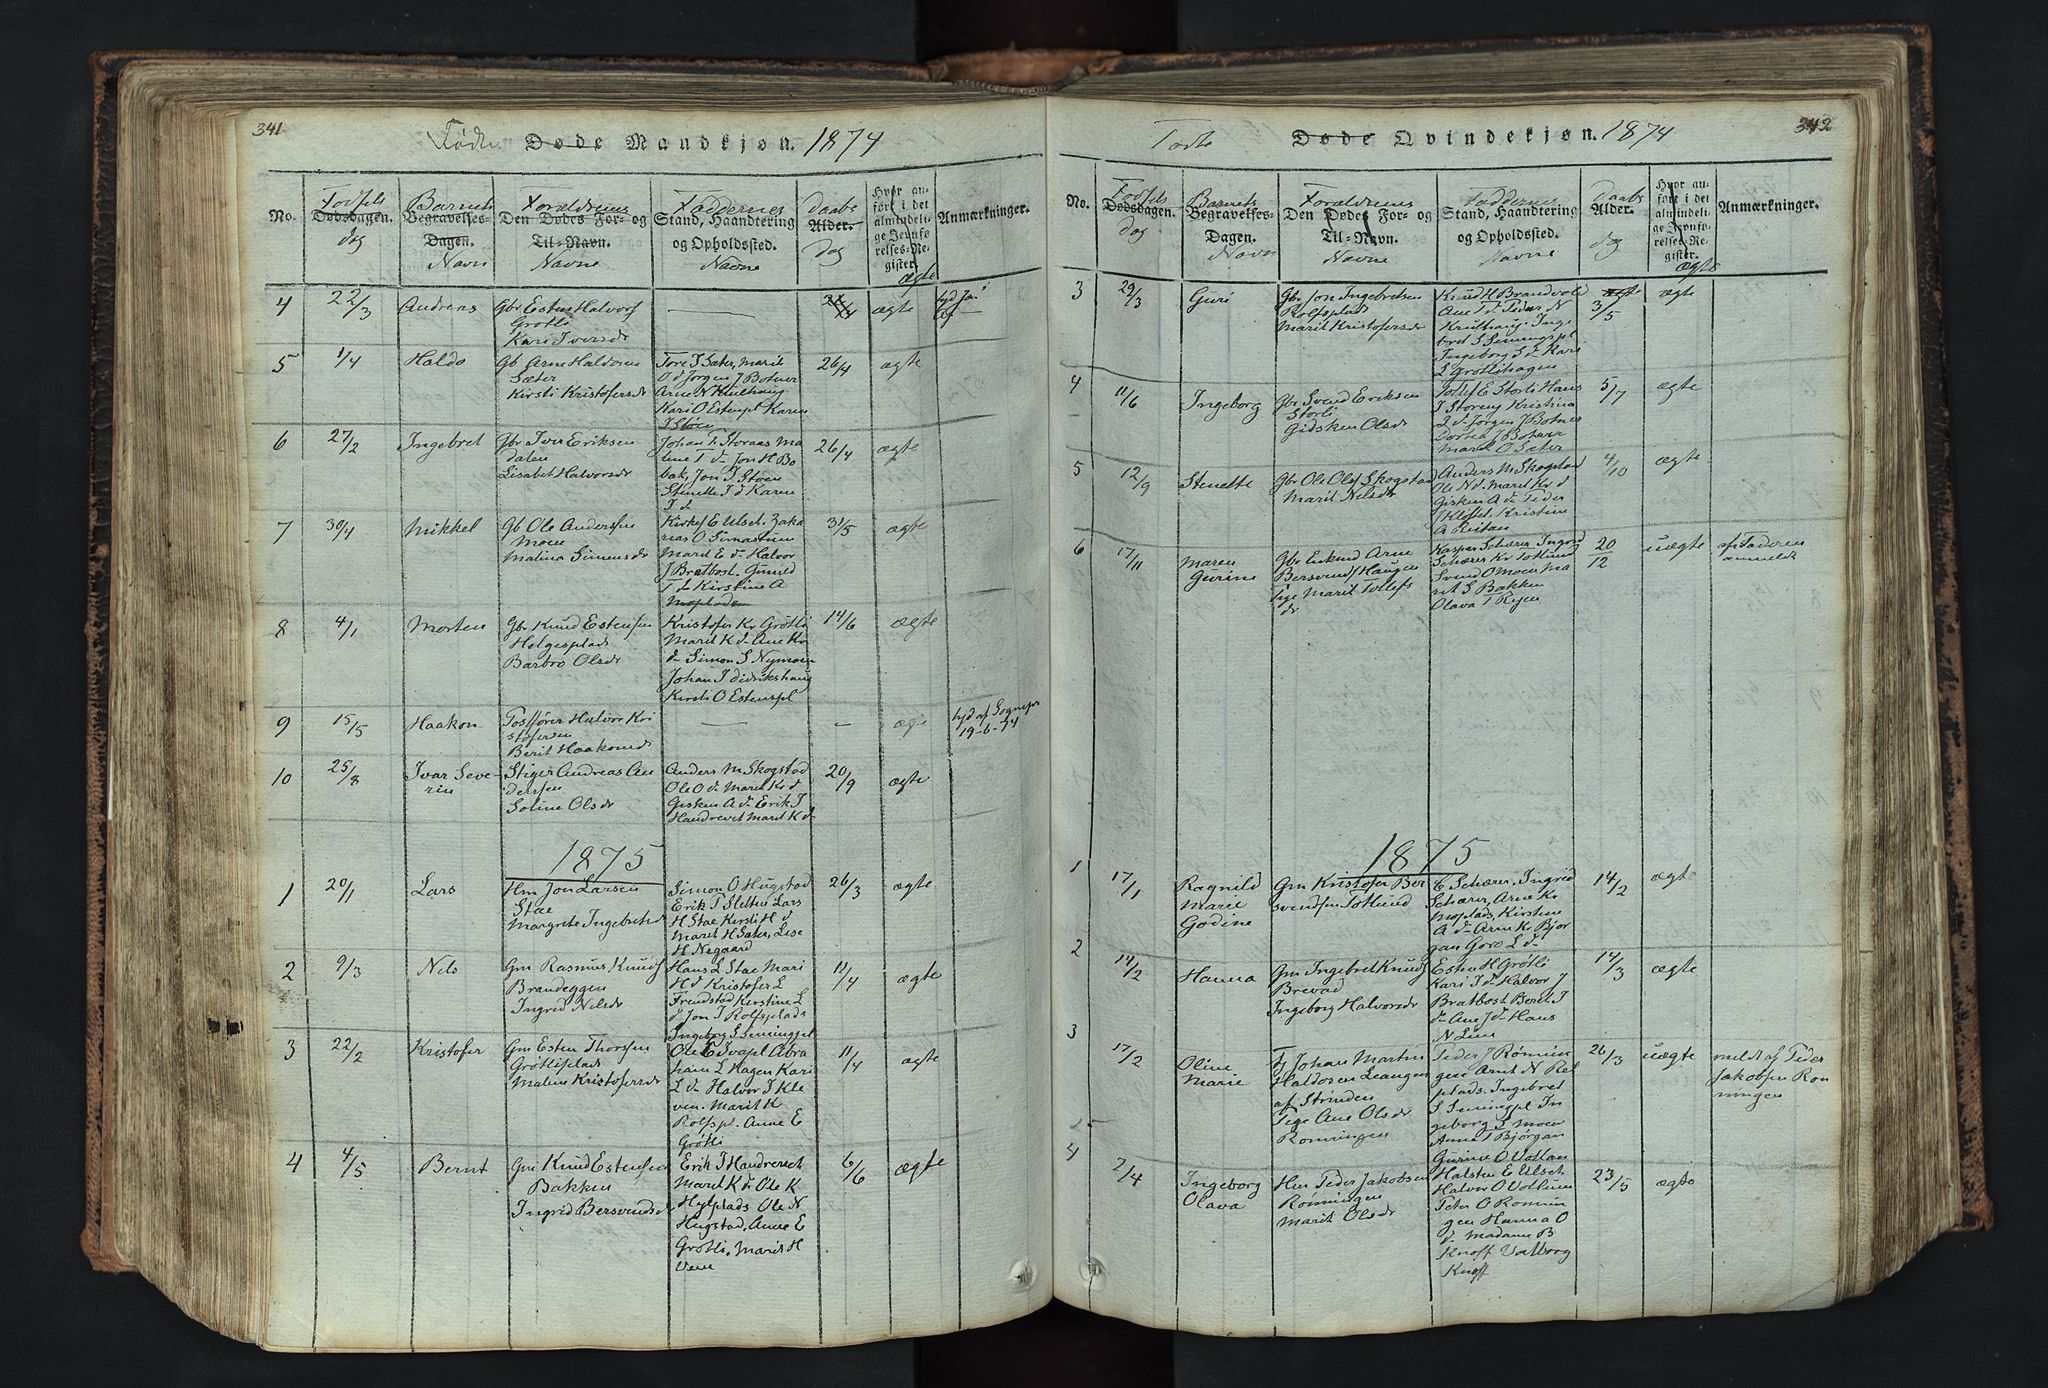 341
Fødte Døde Mandkjøn. 1874
No.
Fødsels
Dødsdagen.
dag
Barnets
Begravelses-
Dagen.
Navn
Forældrenes
Den Dødes For- og
Til-Navn.
Navne
Faddernes
Stand, Haandtering
og Opholdssted.
Navne
Daabs
Alder.
dag
Hvor an-
ført i det
almindeli-
ge Jevnfø-
relses-Re-
gister.
ægte
Anmærkninger.
4
22/3
Andreas
Gbr Esten Halvors
Grøtli
Kari Iversdr
ægte
5
1/4
Haldo
Gb Arne Haldosen
Sæter
Kirsti Kristofersdr
Tore J Sæter, Marit
O d Jørgen J Botner
Arne N Krulhaug
Kari O Estenspl Karen
J Stoen
26/4
ægte
6
27/2
Ingebret
Gbr Iver Eriksen
dalen
Lisabet Halvorsdr
Johan T. Storaas Ma
lene T d- Jon H Bo
bak, Jon J Stoen
Stenette J d Karen
J d
26/4
ægte
7
30/4
Mikkel
Gb Ole Andersen
Moen
Malina Simensdr
31/5
ægte
Marit E d- Halvor
J Bratbost. Gunild
T d Kirstine A
Moplads
8
4/1
Morten
Gbr Knud Estensen
Helgesplads
Barbro Olsdr
Kristofer Kr Grøtli
Marit K d- Ane Kr
d- Simon S Nymoen
Johan J didrikshaug
Kirsti O Estenspl
14/6
ægte
9
15/5
Haakon
Postfører Halvor Kri
stofersen
Berit Haakonsdr
—
—
ægte
hjd af Sognepr
19-6-74
10
25/8
Ivar Seve-
rin
Stiger Andreas An
dersen
Soline Olsdr
Anders M Skogstad
Ole O d- Maren Kr d
Gisken A d- Erik J
Haudrevet Marit K d-
20/9
ægte
1875
1
20/1
Lars
Hm Jon Larsen
Stae
Margrete Ingebretsd
Simon O Hugstad
Erik P Sletten Lars
H Stae, Kirsti H d
Marit H Sæter, Lise
H Nygaard
26/3
ægte
2
9/3
Nels
Gm Rasmus Knuds
Brandeggen
Ingrid Nelsdr
Hans L Stae Mari
H d Kristofer L
Frendstad Kirstine L
d Jon J Rolfsplads
Ingeborg S Simingspl
11/4
ægte
3
22/2
Kristofer
Gm Esten Thorsen
Grøtliplads
Maline Kristofersdr
Ole E Svapl Abra
ham L Hagen Kari
L d- Halvor J Kle
ven. Marit K
Rolfspl. Anne E
Grøtli
11/4
ægte
4
4/5
Bernt
Gm Knud Estensen
Bakken
Ingrid Bersvendsdr
Erik J Haudrevet
Marit K d- Ole K
Hylplads Ole N
Hugstad, Anne E
Grøtli. Marit H
Veen
6/6
ægte
342
Fødte Døde Qvindekjøn. 1874
No.
Fødsels
Dødsdagen.
dag
Barnets
Begravelses-
Dagen.
Navn
Forældrenes
Den Dødes For- og
Til-Navn.
Navne
Faddernes
Stand, Haandtering
og Opholdssted.
Navne
Daabs
Alder.
dag
Hvor an-
ført i det
almindeli-
ge Jevnfø-
relses-Re-
gister.
ægte
Anmærkninger.
3
29/3
Guri
Gbr Jon Ingebretsen
Rolfsplads
Marit Kristofersdr
Knud H Brandvold
Ane T d- Peder N
Krulhaug Inge
bret S Simingspl
Ingeborg S d- Kari
L Grøtlihagen
3/5
ægte
4
11/6
Ingeborg
Gbr Svend Eriksen
Storli
Gidsken Olsdr
Tollef E Storli Hans
J Storeng Kristina
J d- Jørgen J Botner
Dortea J Botner
Marit O Sæter
5/7
ægte
5
12/9
Stenette
Gbr Ole Ols Skogstad
Marit Nelsdr
Anders M Skogstad
Ole N d. Marit Kr d
Gisken A d- Peder
J Kløftet. Kristine
A Reitan
4/10
ægte
6
17/11
Maren
Gurine
Gbr Enkemd Arne
Bersvends Haugen
Pige Marit Tollefs
dr
Kaspar Schærer Ingrid
Schærer Kr Totlund
Svend O Moen Ma
rit S Bakken
Olava T Røen
20/12
uægte
af Faderen
anmeldt
1875
1
17/1
Ragnild
Marie
Godine
Gm Kristofer Ber
svendsen Totlund
E Schærer, Ingrid
Schærer, Arne Kr
Moplads, Kirstine
A d- Arne Kr Bjor
gan Goro L d-
14/2
ægte
2
14/2
Hanna
Gm Ingebret Knuds
Brevad
Ingeborg Halvorsdr
Esten H Grøtli
Kari J d- Halvor J
Bratbost Beret J
d- Ane J d- Hans
N Lien
14/3
ægte
3
17/2
Oline
Marie
Fj Johan Martin
Haldosen Leangen
af Strinden
Pige Ane Olsdr
Rønningen
Peder J Rønnin
gen Arnt N Rel
plads. Ingebret
S Simingspl In
geborg S Moen
Anne T Bjørgan
Gurine O Vollan
26/3
uægte
meldt af Peder
Jakobsen Røn
ningen
4
2/4
Ingeborg
Olava
Hm Peder Jakobsen
Rønningen
Marit Olsdr
Halsten E Ulset
Halvor O Votlum
Peter O Rønnin
gen Hanna O
d- Madame B
Knoff Valborg
Knoff
23/5
ægte